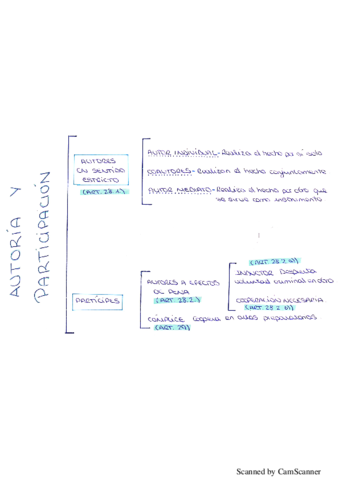 AUTORÍA Y
PARTICIPACIÓN
AUTORES
EN SENTIDO
ESTRICTO
(ART. 28.1)
AUTOR INDIVIDUAL - Realiza el hecho por sí solo
COAUTORES - Realizan el hecho conjuntamente
AUTOR MEDIATO - Realiza el hecho por otro que
se sirve como instrumento
PARTÍCIPES
AUTORES A EFECTOS
DE PENA
(ART. 28.2)
(ART. 28.2 a))
INDUCTOR Despierta
voluntad criminal en otro
COOPERACIÓN NECESARIA
(ART. 28.2 b))
CÓMPLICE coopera en actos preparatorios
(ART. 29)
Scanned by CamScanner